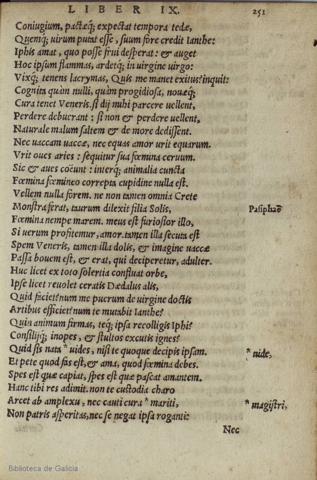 LIBER IX.
251
Coniugium, pactæq; expectat tempora tedæ,
Quemq; uirum putat esse, suum fore credit Ianthe:
Iphis amat, quo posse frui desperat: & auget
Hoc ipsum flammas, ardetq; in uirgine uirgo:
Vixq; tenens lacrymas, Quis me manet exitus? inquit:
Cognita quàm nulli, quàm prodigiosa, nouæq;
Cura tenet Veneris. si dij mihi parcere uellent,
Perdere debuerant: si non & perdere uellent,
Naturale malum saltem & de more dedissent.
Nec uaccam uaccæ, nec equas amor urit equarum.
Vrit oues aries: sequitur sua fœmina ceruum.
Sic & aues coëunt: interq; animalia cuncta
Fœmina fœmineo correpta cupidine nulla est.
Vellem nulla forem. ne non tamen omnia Crete
Monstra ferat, taurum dilexit filia Solis,
Pasiphaë
Fœmina nempe marem. meus est furiosior illo,
Si uerum profitemur, amor. tamen illa secuta est
Spem Veneris, tamen illa dolis, & imagine uaccæ
Passa bouem est, & erat, qui deciperetur, adulter.
Huc licet ex toto solertia confluat orbe,
Ipse licet reuolet ceratis Dædalus alis,
Quid faciet? num me puerum de uirgine doctis
Artibus efficiet? num te mutabit Ianthe?
Quin animum firmas, teq; ipsa recolligis Iphi?
Consilijq; inopes, & stultos excutis ignes?
Quid sis nata * uides, nisi te quoque decipis ipsam.
* uide,
Et pete quod fas est, & ama, quod fœmina debes.
Spes est quæ capiat, spes est quæ pascat amantem.
Hanc tibi res adimit. non te custodia charo
Arcet ab amplexu, nec cauti cura * mariti,
* magistri,
Non patris asperitas, nec se negat ipsa roganti:
Nec
Biblioteca de Galicia